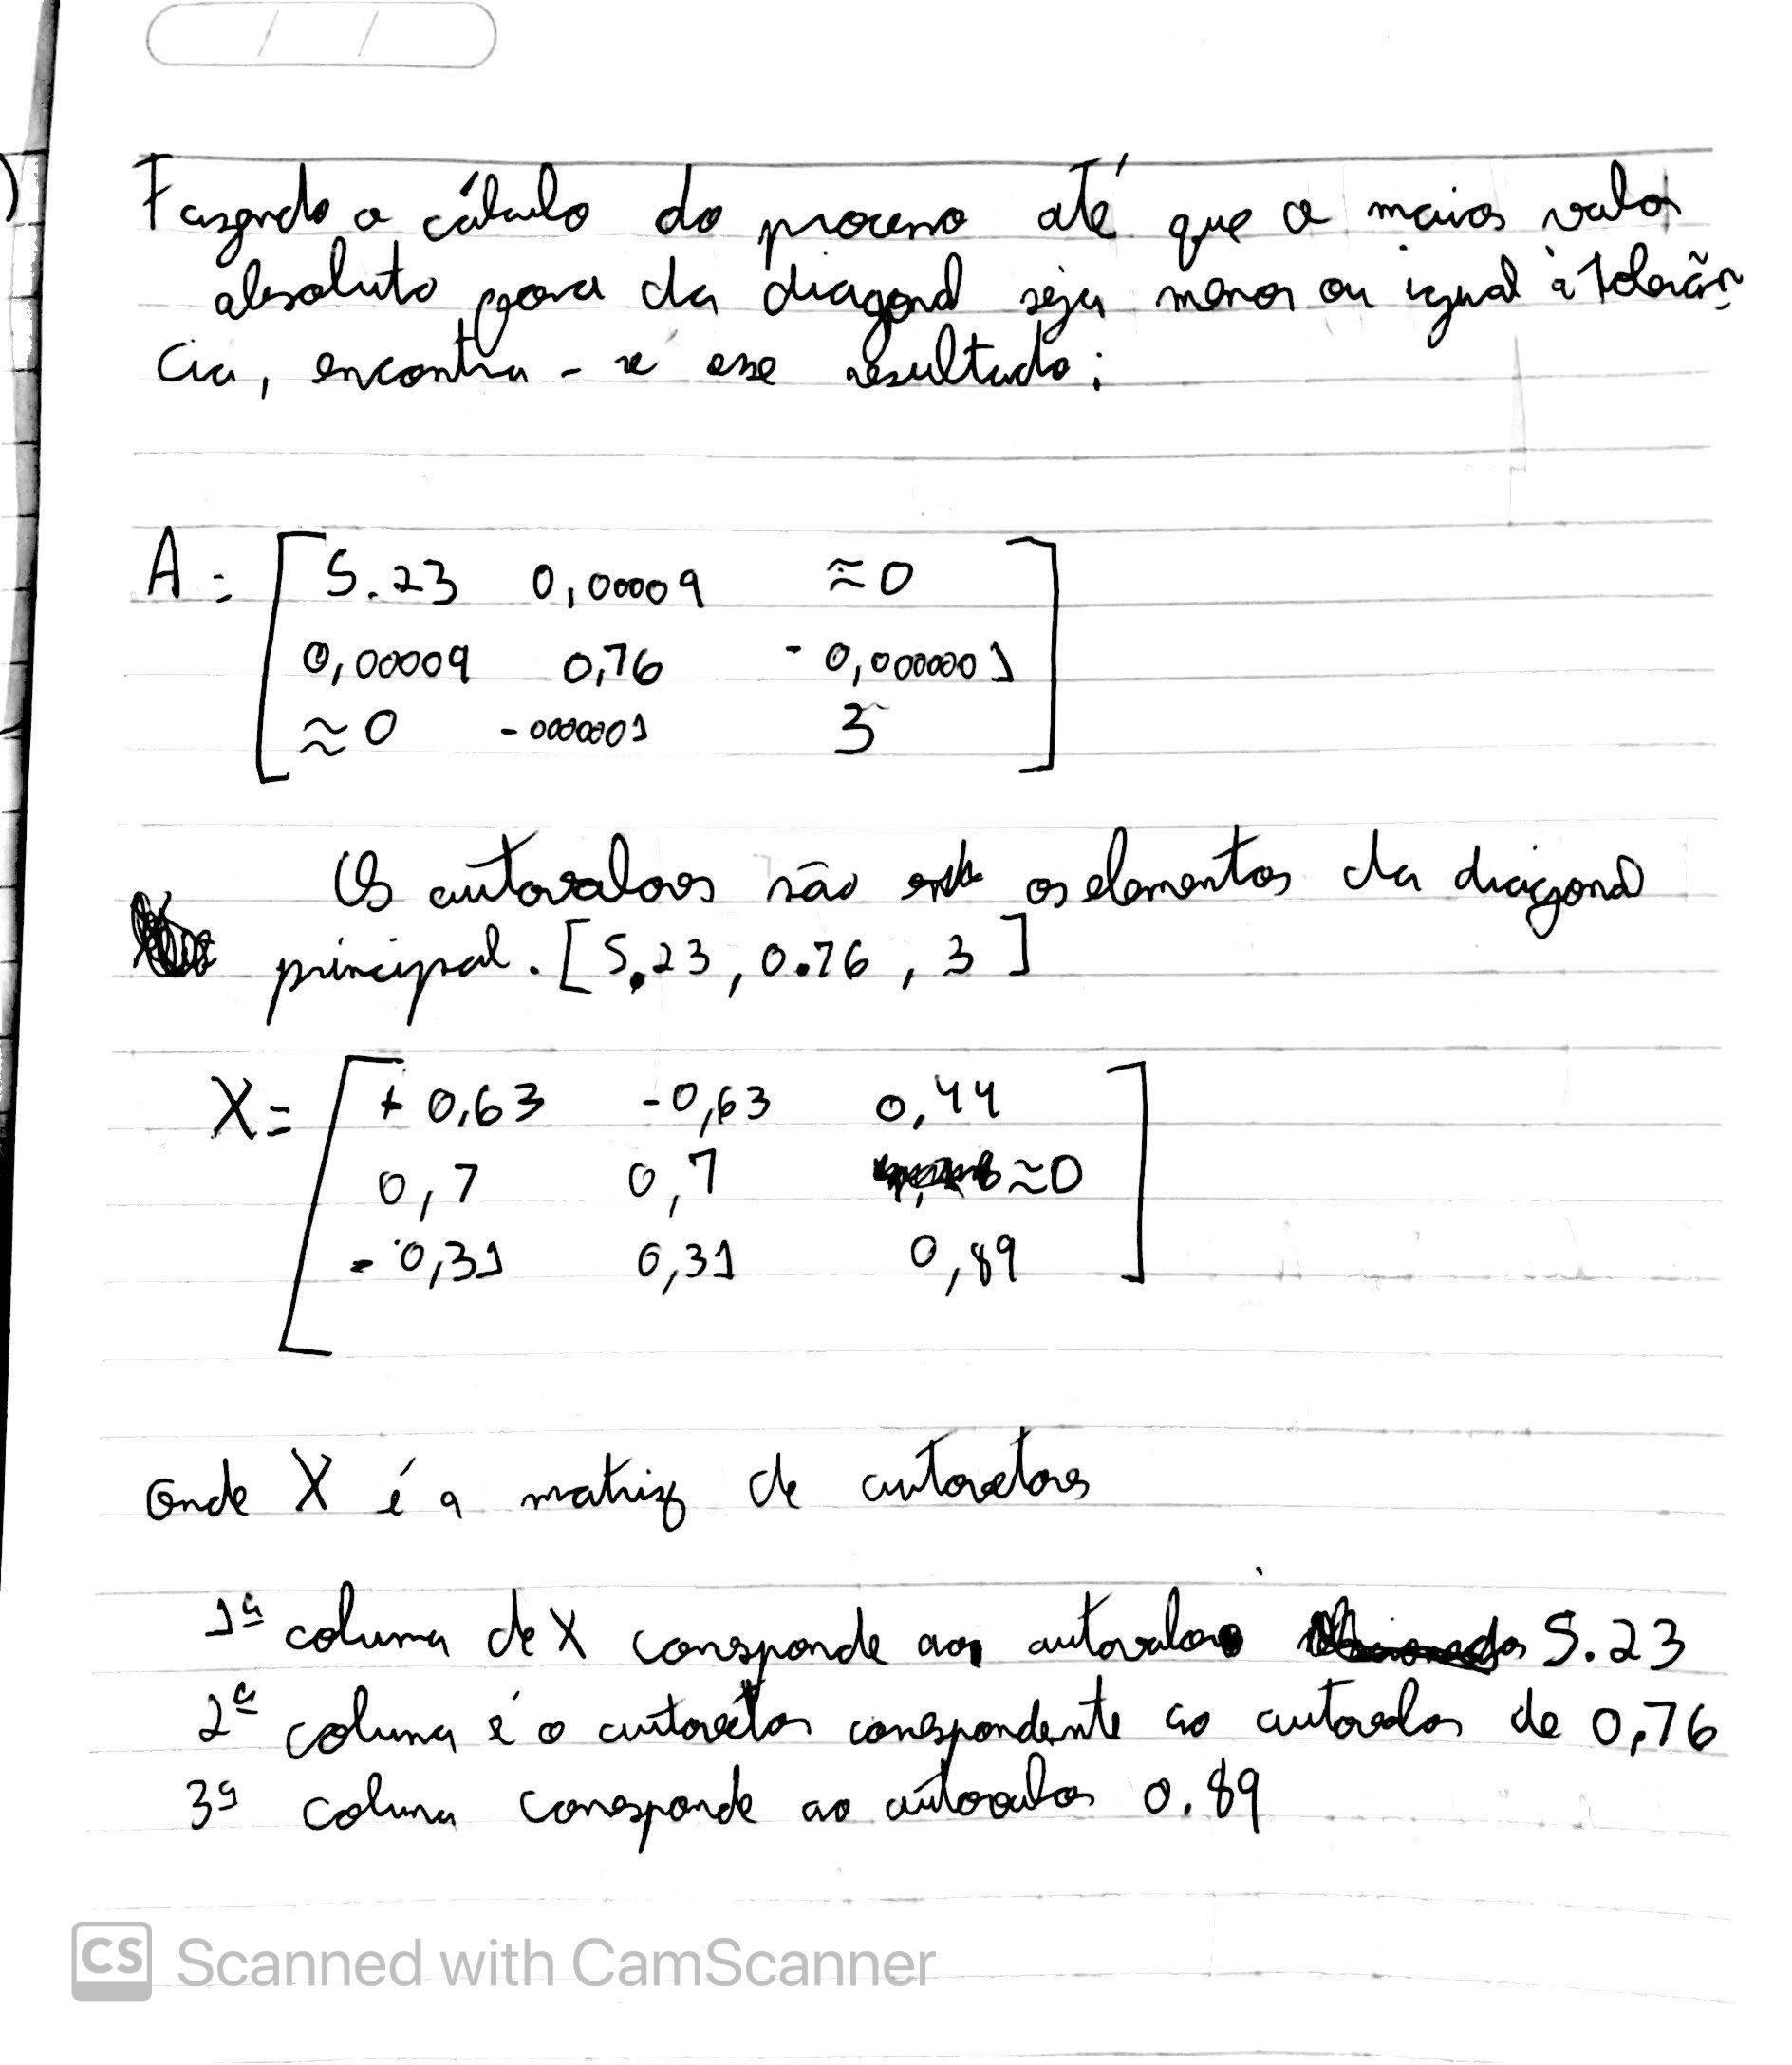 / /
)
Fazendo o cálculo do processo até que o maior valor
absoluto fora da diagonal seja menor ou igual à tolerân
cia, encontra-se esse resultado:
A = [ 5.23 0,00009 ≈0
0,00009 0,76 -0,0000001
≈0 -0000001 3 ]
Os autovalores são os elementos da diagonal
principal. [5.23, 0.76, 3]
X = [ +0,63 -0,63 0,44
0,7 0,7 ≈0
-0,31 0,31 0,89 ]
onde X é a matriz de autovetores
1ª coluna de X corresponde ao autovalor 5.23
2ª coluna é o autovetor correspondente ao autovalor de 0,76
3ª coluna corresponde ao autovalor 0.89
CS Scanned with CamScanner